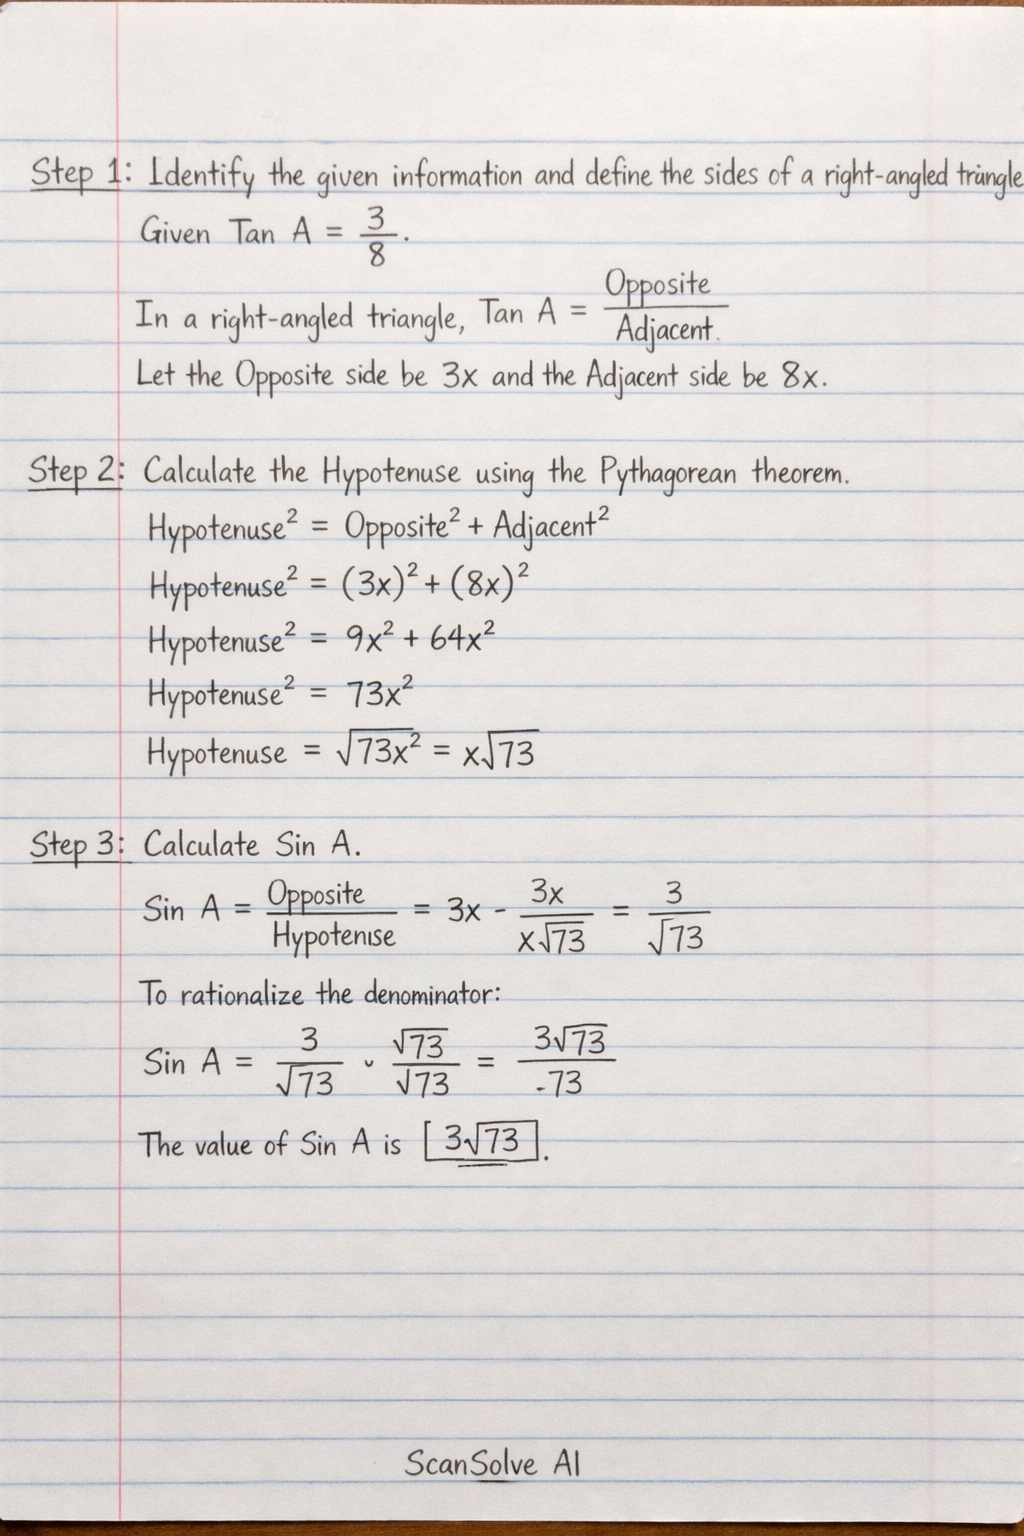 Step 1: Identify the given information and define the sides of a right-angled triangle
Given Tan A = 3/8.
In a right-angled triangle, Tan A = Opposite/Adjacent.
Let the Opposite side be 3x and the Adjacent side be 8x.
Step 2: Calculate the Hypotenuse using the Pythagorean theorem.
Hypotenuse² = Opposite² + Adjacent²
Hypotenuse² = (3x)² + (8x)²
Hypotenuse² = 9x² + 64x²
Hypotenuse² = 73x²
Hypotenuse = √73x² = x√73
Step 3: Calculate Sin A.
Sin A = Opposite/Hypotenise = 3x - 3x/x√73 = 3/√73
To rationalize the denominator:
Sin A = 3/√73 · √73/√73 = 3√73/-73
The value of Sin A is [3√73].
ScanSolve AI